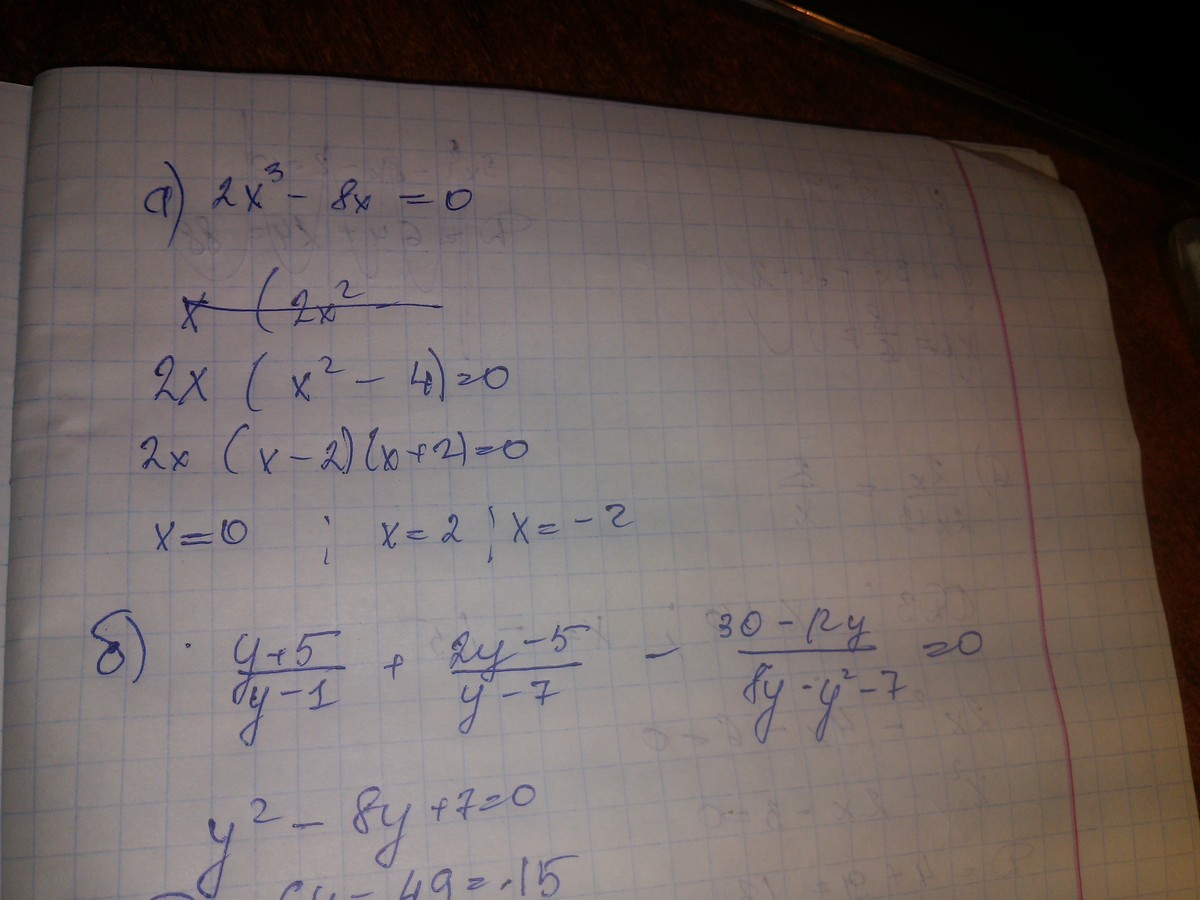 а) 2x³ - 8x = 0
x (2x²
2x (x² - 4) = 0
2x (x - 2)(x + 2) = 0
x = 0 ; x = 2 ; x = -2
б) (y+5)/(y-1) + (2y-5)/(y-7) - (30-12y)/(8y-y²-7) = 0
y² - 8y + 7 = 0
49 = 15